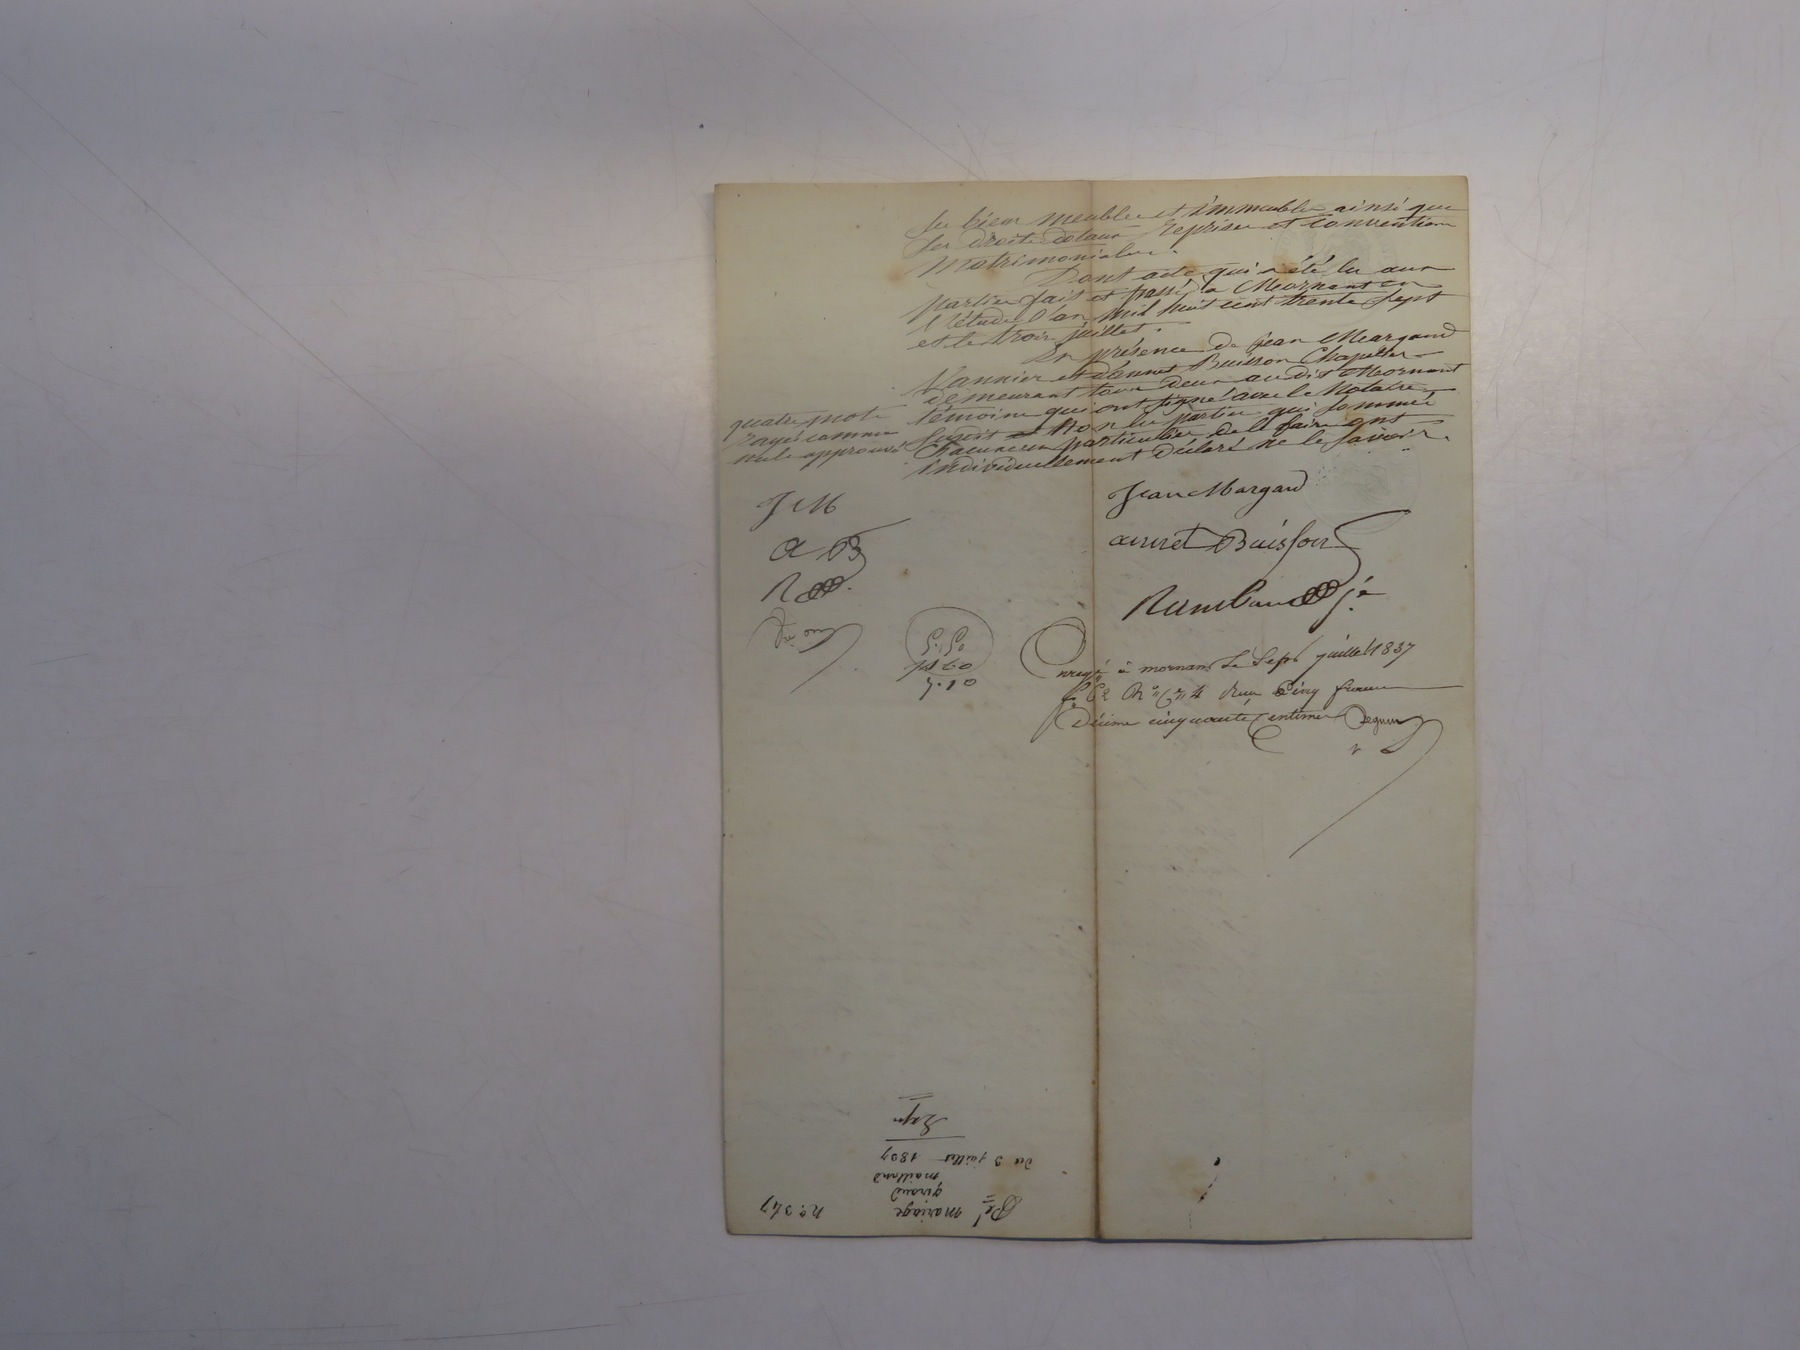 ses biens meubles et immeubles ainsi que
ses droits dotaux reprises et conventions
matrimoniales.
Dont acte qui a été lu aux
parties fait et passé à Mornant en
l'étude l'an mil huit cent trente sept
et le trois juillet.
En présence de jean Margand
Vannier et d'annet Buisson Chapelier
demeurant tous deux audit Mornant
témoins qui ont signé avec le Notaire
susdit Non les parties qui sommée
chacune en particulier de le faire ont
individuellement déclaré ne le savoir.
quatre mots
rayés comme
nuls approuvé
J M
A B
R
Jean Margand
annet Buisson
Rambaud
à mornant Le Sept juillet 1837
cinq francs
Décime cinquante centimes
5.50
5.10
nº. 347
mariage
giraud
mailland
du 3 juillet 1837